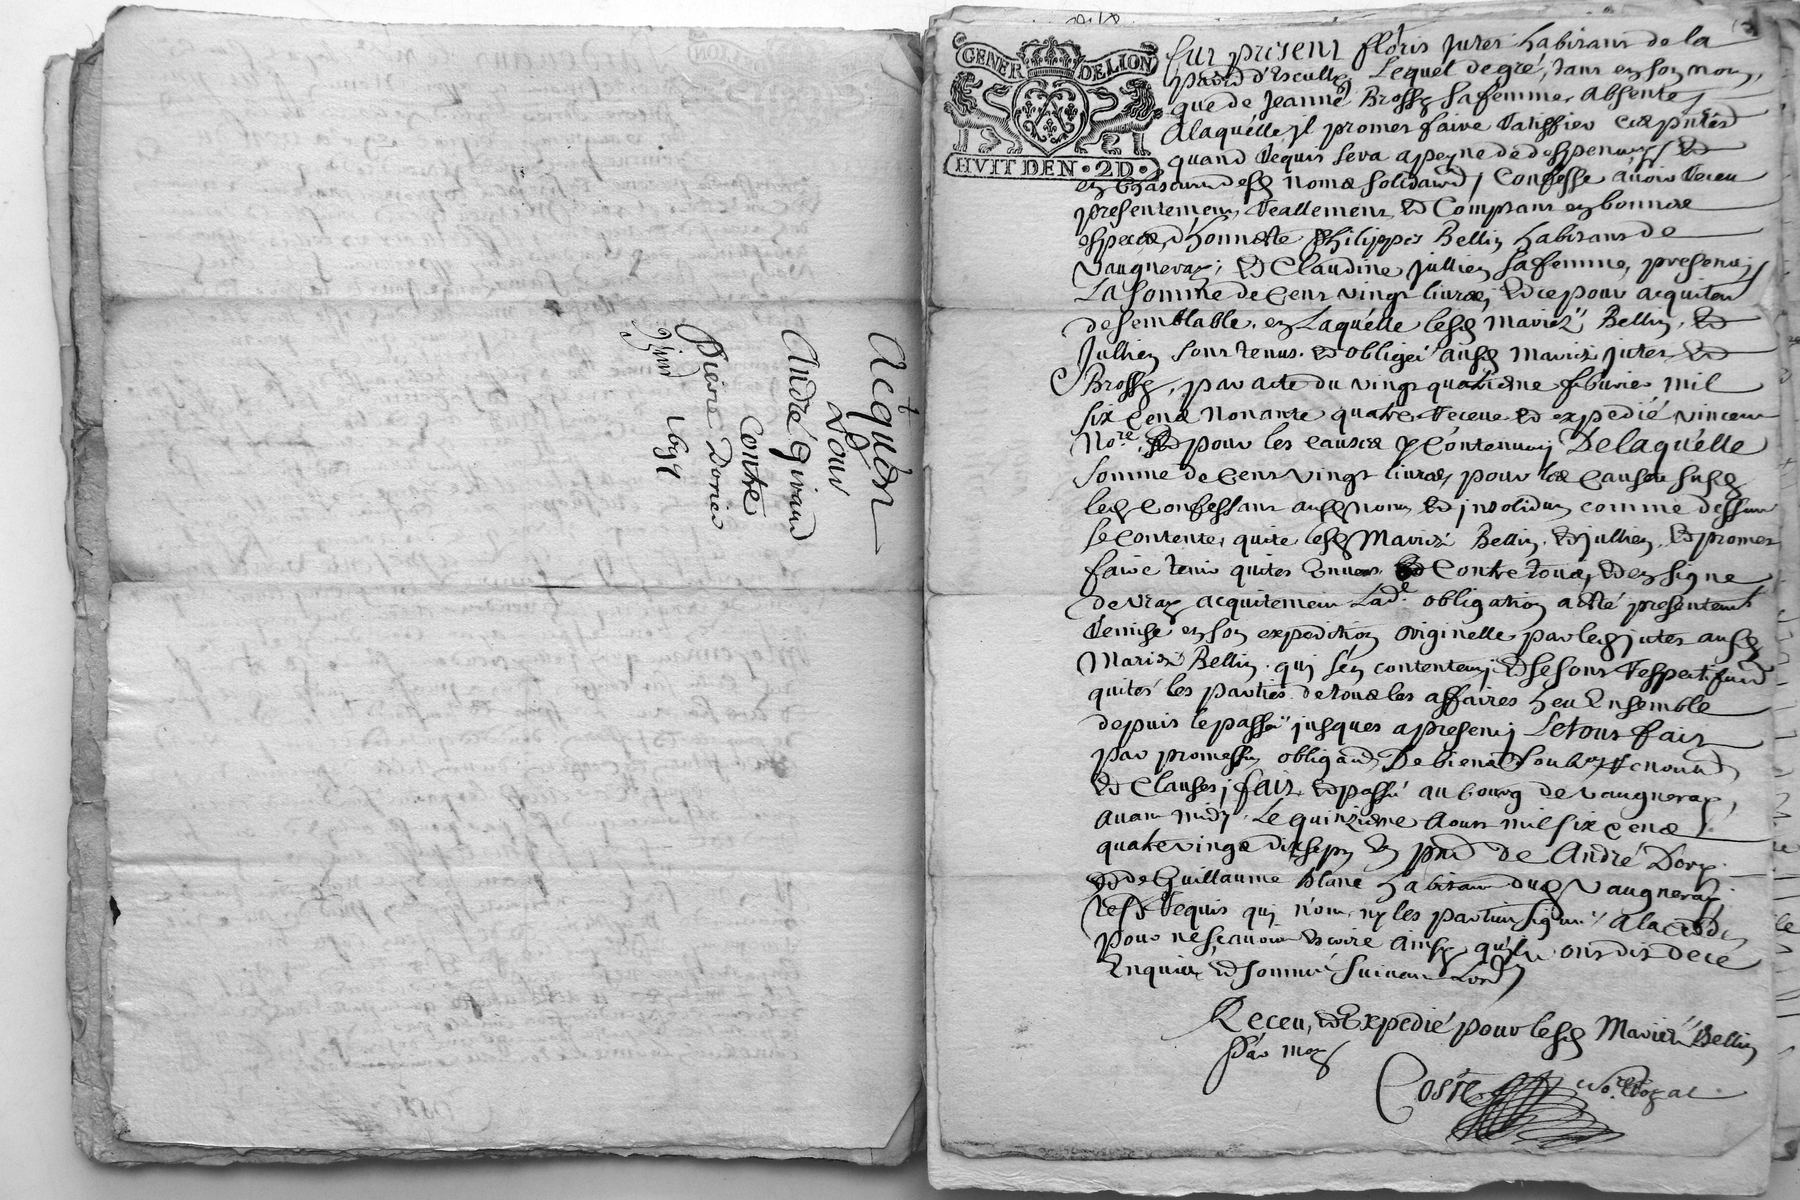 Acquit
Pour
André Giraud
Contre
Pierre Dorier
1691
GENER DE LION
HVIT DEN • 2 D •
fut present floris Jutes habitant de la
parr d'Escully Lequel de gré, tant en son nom,
que de Jeanne Brosse sa femme absente,
a laquelle il promet faire Ratiffier ces pntes
quand Requis sera a peyne de despens, et
en chascun desd noms solidaires, Confesse avoir Receu
presentement Reallement et Comptant en bonnes
especes, d'honneste Philippes Bellin habitant de
Vaugneray, et Claudine Jullien sa femme, presents
La somme de Cent vingt livres, et ce pour acquitem
de semblable, en Laquelle lesd mariez Bellin, et
Jullien sont tenus et obligei ausd mariez jutes et
Brosse, par acte du vingt quatriesme febvrier mil
six cens nonante quatre Receue et expedié vincent
No.re et pour les causes y Contenues, De laquelle
somme de Cent vingt livres, pour les causes susd
led Confessant ausd noms et jnsolidum comme dessus
se contente, quite lesd Mariez Bellin, et jullien, et promet
faire tenir quites Envers et Contre tous, et en signe
de vray acquitement Lad.e obligation a esté presentemt
Remise en son expedition originelle par led jutes ausd
Mariez Bellin, qui s'en contentent, et se sont Respectifvmt
quités les parties de tous les affaires heu Ensemble
depuis le passé jusques a present, Le tout fait
par promesses obligaons De biens
et Clauses, fait et passé au bourg de Vaugneray,
avant midy, Le quinziesme Aoust mil six cens
quatre vingt dix sept En pnce de André Dory
et de Guillaume Blanc habitant dud Vaugneray,
Requis qui n'ont, ny les parties signé a la cedde,
pour ne scavoir escrire ainsy qu'ils ont dit de ce
Enquis et sommé suivant L'ord.
Receu, et Expedié pour lesd Mariez Bellin
Par moy
Coste No.re Royal